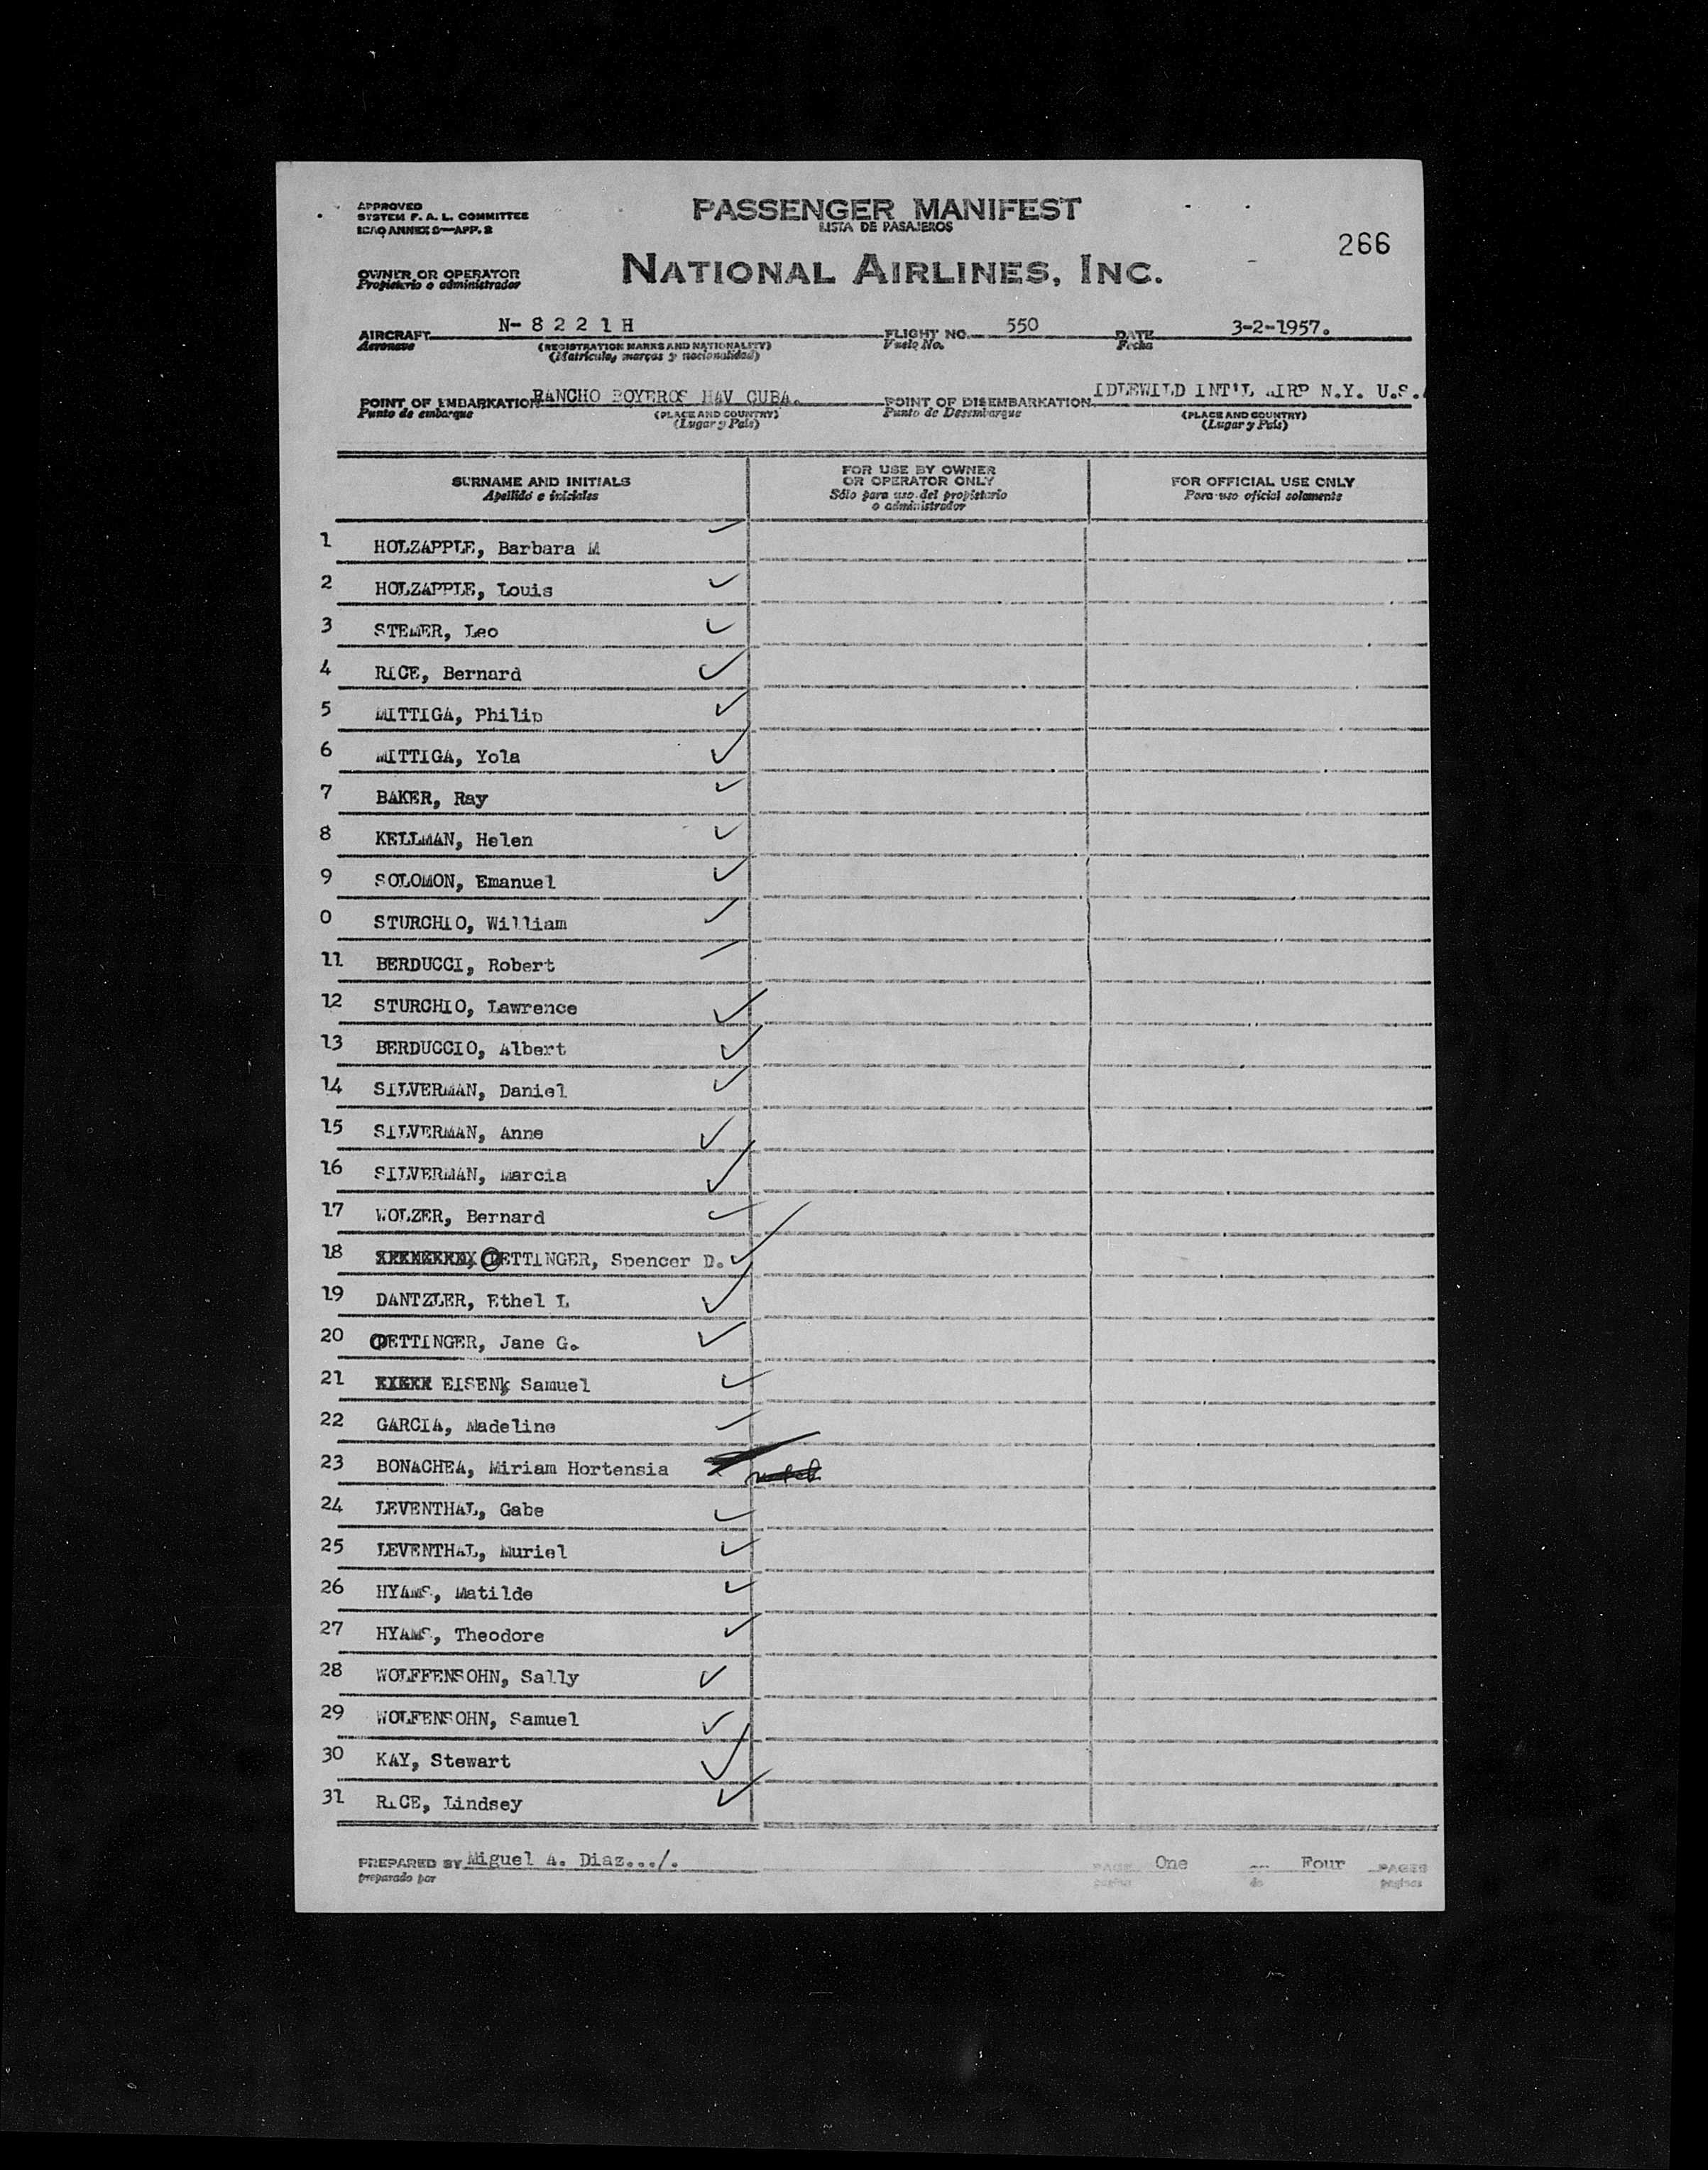 APPROVED
SYSTEM F. A. L. COMMITTEE
ICAO ANNEX 9—APP. 2
PASSENGER MANIFEST
LISTA DE PASAJEROS
266
OWNER OR OPERATOR
Propietario o administrador
NATIONAL AIRLINES, INC.
AIRCRAFT N- 8 2 2 1 H FLIGHT NO. 550 DATE 3-2-1957.
Aeronave (REGISTRATION MARKS AND NATIONALITY) Vuelo No. Fecha
(Matricula, marcas y nacionalidad)
POINT OF EMBARKATION RANCHO BOYEROS HAV CUBA. POINT OF DISEMBARKATION IDLEWILD INT'L AIRP N.Y. U.S.
Punto de embarque (PLACE AND COUNTRY) Punto de Desembarque (PLACE AND COUNTRY)
(Lugar y Pais) (Lugar y Pais)
SURNAME AND INITIALS
Apellido e iniciales
FOR USE BY OWNER
OR OPERATOR ONLY
Sólo para uso del propietario
o administrador
FOR OFFICIAL USE ONLY
Para uso oficial solamente
1 HOLZAPPLE, Barbara M
2 HOLZAPPLE, Louis
3 STEMER, Leo
4 RICE, Bernard
5 MITTIGA, Philip
6 MITTIGA, Yola
7 BAKER, Ray
8 KELLMAN, Helen
9 SOLOMON, Emanuel
0 STURCHIO, William
11 BERDUCCI, Robert
12 STURCHIO, Lawrence
13 BERDUCCIO, Albert
14 SILVERMAN, Daniel
15 SILVERMAN, Anne
16 SILVERMAN, Marcia
17 WOLZER, Bernard
18 OETTINGER, Spencer D.
19 DANTZLER, Ethel L
20 OETTINGER, Jane G.
21 EISEN, Samuel
22 GARCIA, Madeline
23 BONACHEA, Miriam Hortensia
24 LEVENTHAL, Gabe
25 LEVENTHAL, Muriel
26 HYAMS, Matilde
27 HYAMS, Theodore
28 WOLFFENSOHN, Sally
29 WOLFENSOHN, Samuel
30 KAY, Stewart
31 RICE, Lindsey
PREPARED BY Miguel A. Diaz.../. PAGE One OF Four PAGES
preparado por pagina de paginas